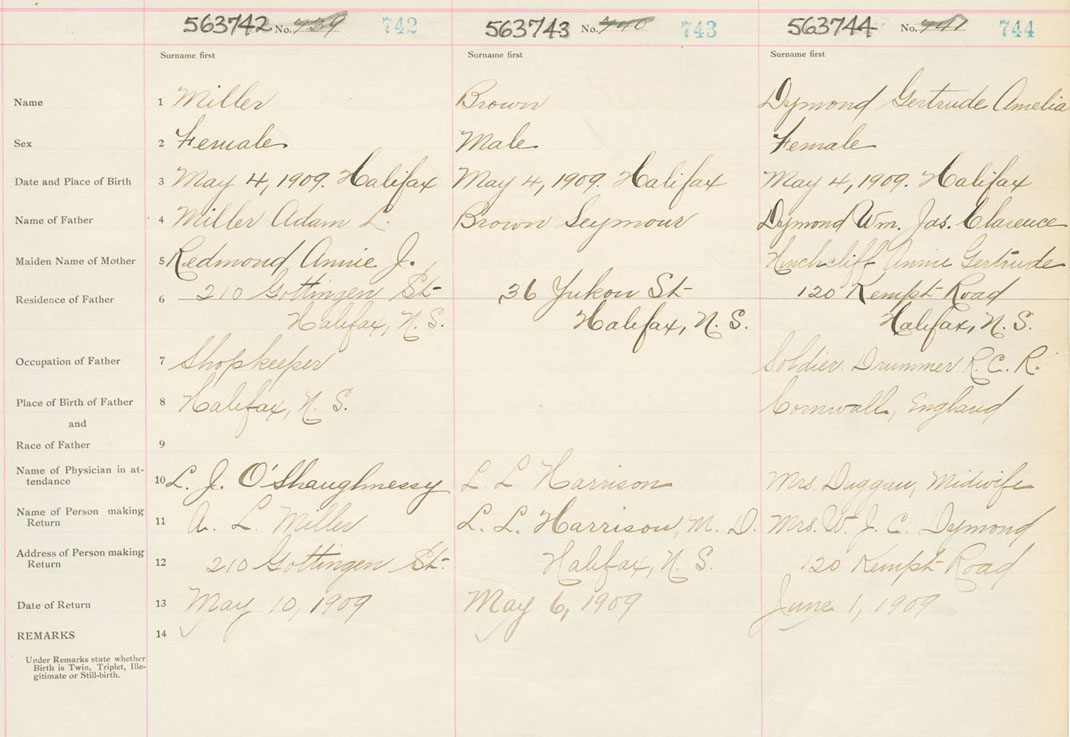 563742 No. 739 742 563743 No. 740 743 563744 No. 741 744
Surname first Surname first Surname first
Name 1 Miller Brown Dymond Gertrude Amelia
Sex 2 Female Male Female
Date and Place of Birth 3 May 4, 1909. Halifax May 4, 1909. Halifax May 4, 1909. Halifax
Name of Father 4 Miller Adam L. Brown Seymour Dymond Wm. Jas. Clarence
Maiden Name of Mother 5 Redmond Annie J. Hinchcliff Annie Gertrude
Residence of Father 6 210 Gottingen St- 36 Yukon St- 120 Kempt Road
Halifax, N.S. Halifax, N.S. Halifax, N.S.
Occupation of Father 7 Shopkeeper Soldier Drummer R.C.R.
Place of Birth of Father 8 Halifax, N.S. Cornwall, England
and
Race of Father 9
Name of Physician in at-
tendance 10 L. J. O'Shaughnessy L. L Harrison Mrs. Duggan, Midwife
Name of Person making
Return 11 A. L. Miller L. L. Harrison, M.D. Mrs. W. J. C. Dymond
Address of Person making
Return 12 210 Gottingen St- Halifax, N.S. 120 Kempt Road
Date of Return 13 May 10, 1909 May 6, 1909 June 1, 1909
REMARKS 14
Under Remarks state whether
Birth is Twin, Triplet, Ille-
gitimate or Still-birth.